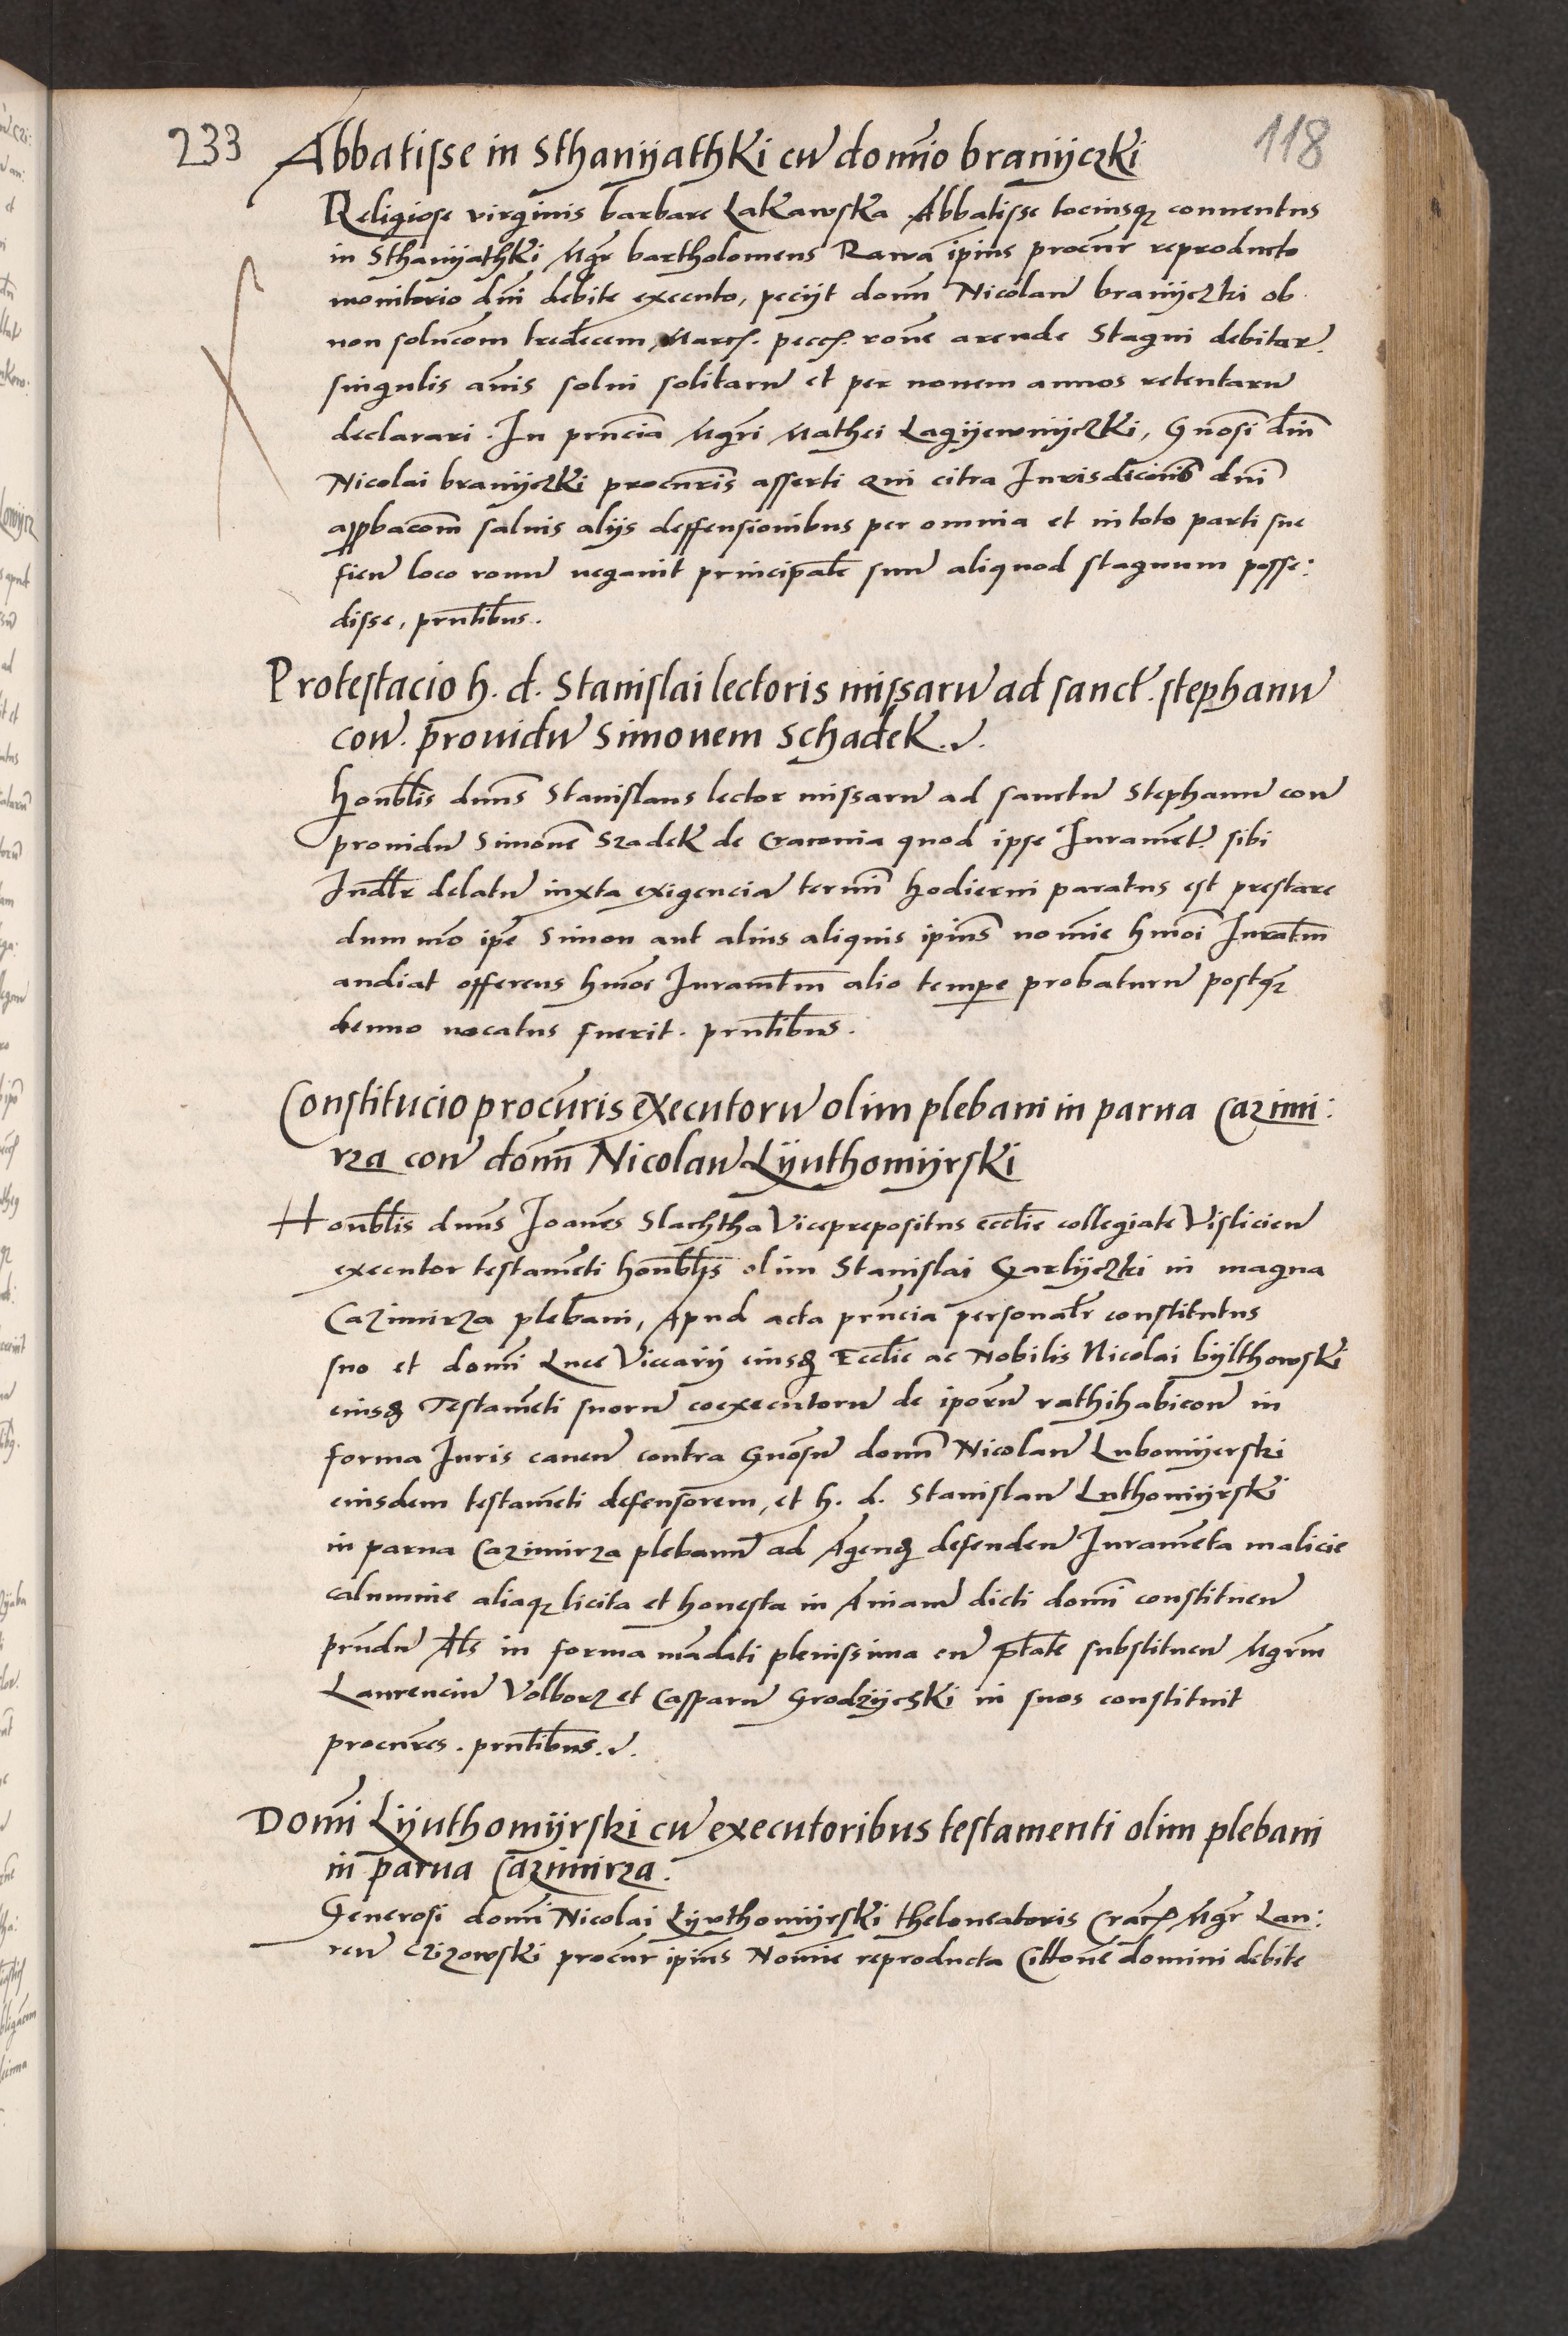 233 118
Abbatisse in Sthanyathki cu̅ domi̅o branyczki
Religiose virginis barbare Lakawska Abbatisse tociusqȝ conuentus
in Sthanyathki Mgr̅ bartholomeus Rawa ip̅ius procur̅ reproducto
monitorio dn̅i debite executo, peciyt domn̅ Nicolau̅ branyczki ob
non soluco̅m tredecem Marcʃ. peccʃ. ro̅ne arende Stagni debitar̅.
singulis an̅is solui solitaru̅ et per nouem annos retentaru̅
declarari. In prn̅cia Mgr̅i Mathei Lagyewnyczki, Gn̅osi dn̅i
Nicolai branyczki procur̅is asserti qui citra Jurisdiconis dn̅i
appbaco̅m saluis alijs deffensionibus per omnia et in toto parti sue
fien̅ loco ronu̅ negauit principale̅ suu̅ aliquod stagnum posse:
disse, prn̅tibus.
Protestacio h. d. Stanislai lectoris missaru̅ ad sanct̅. stephanu̅
con̅. prouidu̅ Simonem Schadek.
Honbl̅is dn̅us Stanislaus lector missaru̅ ad sanctu̅ Stephanu̅ con̅
prouidu̅ Simone̅ Szadek de Cracouia quod ipse Jurame̅t̅ sibi
Judl̅r delatu̅ iuxta exigencia̅ termi̅ hodierni paratus est prestare
dum mo̅ ip̅e Simon aut alius aliquis ipius̅ nomi̅e hmo̅i Juratm̅
audiat offerens hmo̅i Juramtm̅ alio temp̅e probaturu̅ postqȝ
denuo uocatus fuerit. prn̅tibus.
Constitucio procur̅is Executoru̅ olim plebani in parua Cazimi:
rza con̅ domn̅ Nicolau̅ Lyuthomyrski
Honbl̅is dn̅us Joan̅es Slachtha Viceprepositus eccl̅ie collegiate Vislicien̅
executor testame̅ti honbl̅is olim Stanislai Garlyczki in magna
Cazimirza pleba̅ni, Apud acta prn̅cia personal̅r constitutus
suo et domi̅ Luce Viccarij eiusȝ Eccl̅ie ac Nobilis Nicolai bylthowski
eiusȝ Testame̅ti suoru̅ coexecutoru̅ de ipo̅ru̅ rathihabicon̅ in
forma Juris cauen̅ contra Gno̅su̅ domn̅ Nicolau̅ Lubomyerski
eiusdem testame̅ti defensorem, et h. d. Stanislau̅ Luthomyrski
in parua Cazimirza plebanu̅ ad Agen̅ȝ defenden̅ Jurame̅ta malicie
calumnie aliaqȝ licita et honesta in A̅niam̅ dicti domi̅ constituen̅
prn̅du̅ Al̅s in forma ma̅dati plenissima cu̅ pt̅ate substituen̅ Mgrm̅
Laurenciu̅ Volborz et Casparu̅ Grodzyeski in suos constituit
procur̅es. prn̅tibus.
Domi̅ Lyuthomyrski cu̅ executoribus testamenti olim plebani
in parua Cazimirza.
Generosi domi̅ Nicolai Lyuthomyrski theloneatoris Crac̅ʃ Mgr̅ Lau:
ren̅ Czizowski procur̅ ipius̅ Nomi̅e reproducta Citto̅ne domini debite